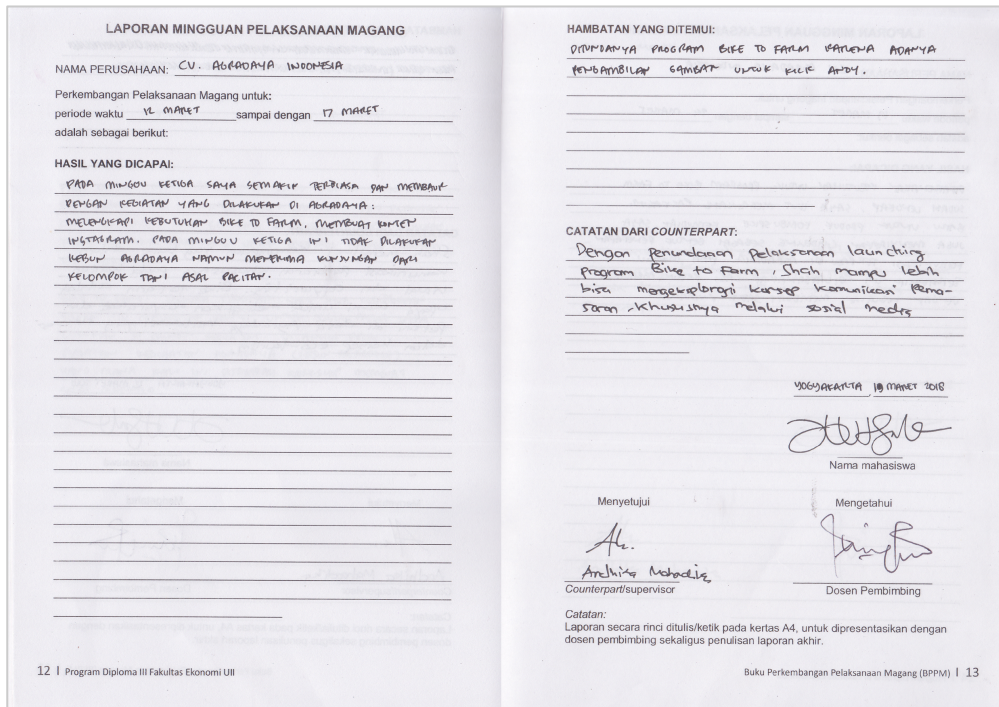 LAPORAN MINGGUAN PELAKSANAAN MAGANG
NAMA PERUSAHAAN: CV. AGRADAYA INDONESIA
Perkembangan Pelaksanaan Magang untuk:
periode waktu 12 MARET sampai dengan 17 MARET
adalah sebagai berikut:
HASIL YANG DICAPAI:
PADA MINGGU KETIGA SAYA SEMAKIN TERBIASA DAN MEMBAUR
DENGAN KEGIATAN YANG DILAKUKAN DI AGRADAYA:
MELENGKAPI KEBUTUHAN BIKE TO FARM, MEMBUAT KONTEN
INSTAGRAM. PADA MINGGU KETIGA INI TIDAK DILAKUKAN
KEBUN AGRADAYA NAMUN MENERIMA KUNJUNGAN DARI
KELOMPOK TANI ASAL PACITAN.
12 | Program Diploma III Fakultas Ekonomi UII
HAMBATAN YANG DITEMUI:
DITUNDANYA PROGRAM BIKE TO FARM KARENA ADANYA
PENGAMBILAN GAMBAR UNTUK KICK ANDY.
CATATAN DARI COUNTERPART:
Dengan penundaan pelaksanaan launching
program Bike to Farm, mampu lebih
bisa mengeksplorasi konsep komunikasi pema-
saran, khususnya melalui sosial media
YOGYAKARTA, 19 MARET 2018
Nama mahasiswa
Menyetujui
Mengetahui
Andhika Mahardika
Counterpart/supervisor
Dosen Pembimbing
Catatan:
Laporan secara rinci ditulis/ketik pada kertas A4, untuk dipresentasikan dengan
dosen pembimbing sekaligus penulisan laporan akhir.
Buku Perkembangan Pelaksanaan Magang (BPPM) | 13